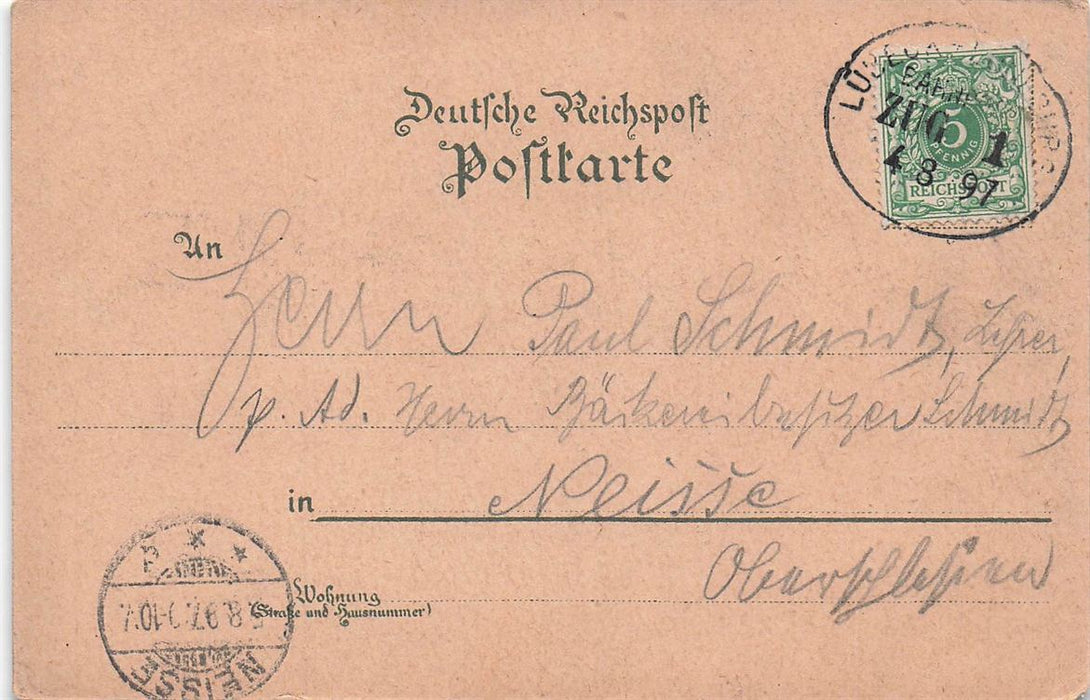 Deutsche Reichspost
Postkarte
LÜBECK-HAMBURG
BAHNP.
ZUG 1
4 8 97
5
PFENNIG
REICHSPOST
An Herrn Paul Schmidt, Lehrer,
p. Ad. Herrn Bäckereibesitzer Schmidt
in Neisse
Oberschlesien
Wohnung
(Straße und Hausnummer)
5.8.97.
NEISSE